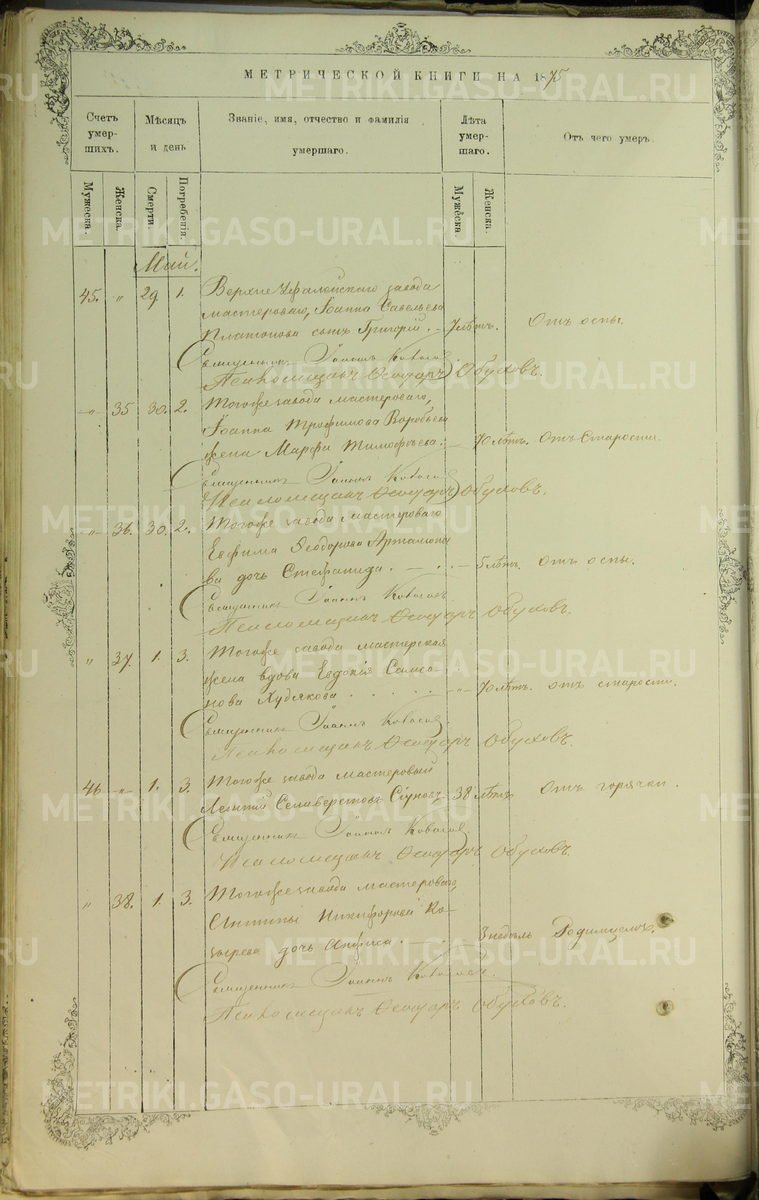 МЕТРИЧЕСКОЙ КНИГИ НА 1875
Счетъ умершихъ.
Мѣсяцъ и день
Званіе, имя, отчество и фамилія умершаго.
Лѣта умершаго.
Отъ чего умеръ.
Мужеска.
Женска.
Смерти.
Погребенія.
Мужеска.
Женска.
Май.
45. " 29 1. Верхне Уфалейскаго завода
мастероваго, Іоанна Савельева
Платонова сынъ Григорій. 7 лѣтъ. Отъ оспы.
Священникъ Іоаннъ
Псаломщикъ Ѳеодоръ Обуховъ.
" 35 30. 2. Тогоже завода мастероваго,
Іоанна Трофимова Воробьева
жена Марфа Тимофѣева. 70 лѣтъ. Отъ Старости.
Священникъ Іоаннъ
Псаломщикъ Ѳеодоръ Обуховъ.
" 36. 30. 2. Тогоже завода мастероваго
Евфима Ѳеодорова Артамоно
ва дочь Стефанида. 5 лѣтъ отъ оспы.
Священникъ Іоаннъ
Псаломщикъ Ѳеодоръ Обуховъ.
" 37. 1. 3. Тогоже завода мастерская
жена вдова Евдокія Самсо
нова Худякова. " 70 лѣтъ. отъ старости.
Священникъ Іоаннъ
Псаломщикъ Ѳеодоръ Обуховъ.
46 " 1. 3. Тогоже завода мастеровый
Селиверстовъ 38 лѣтъ Отъ горячки.
Священникъ Іоаннъ
Псаломщикъ Ѳеодоръ Обуховъ.
" 38. 1. 3. Тогоже завода мастероваго
Антипы Никифорова Ко-
зырева дочь Анфиса. 3 недѣль Родимцемъ.
Священникъ Іоаннъ
Псаломщикъ Ѳеодоръ Обуховъ.
METRIKI.GASO-URAL.RU